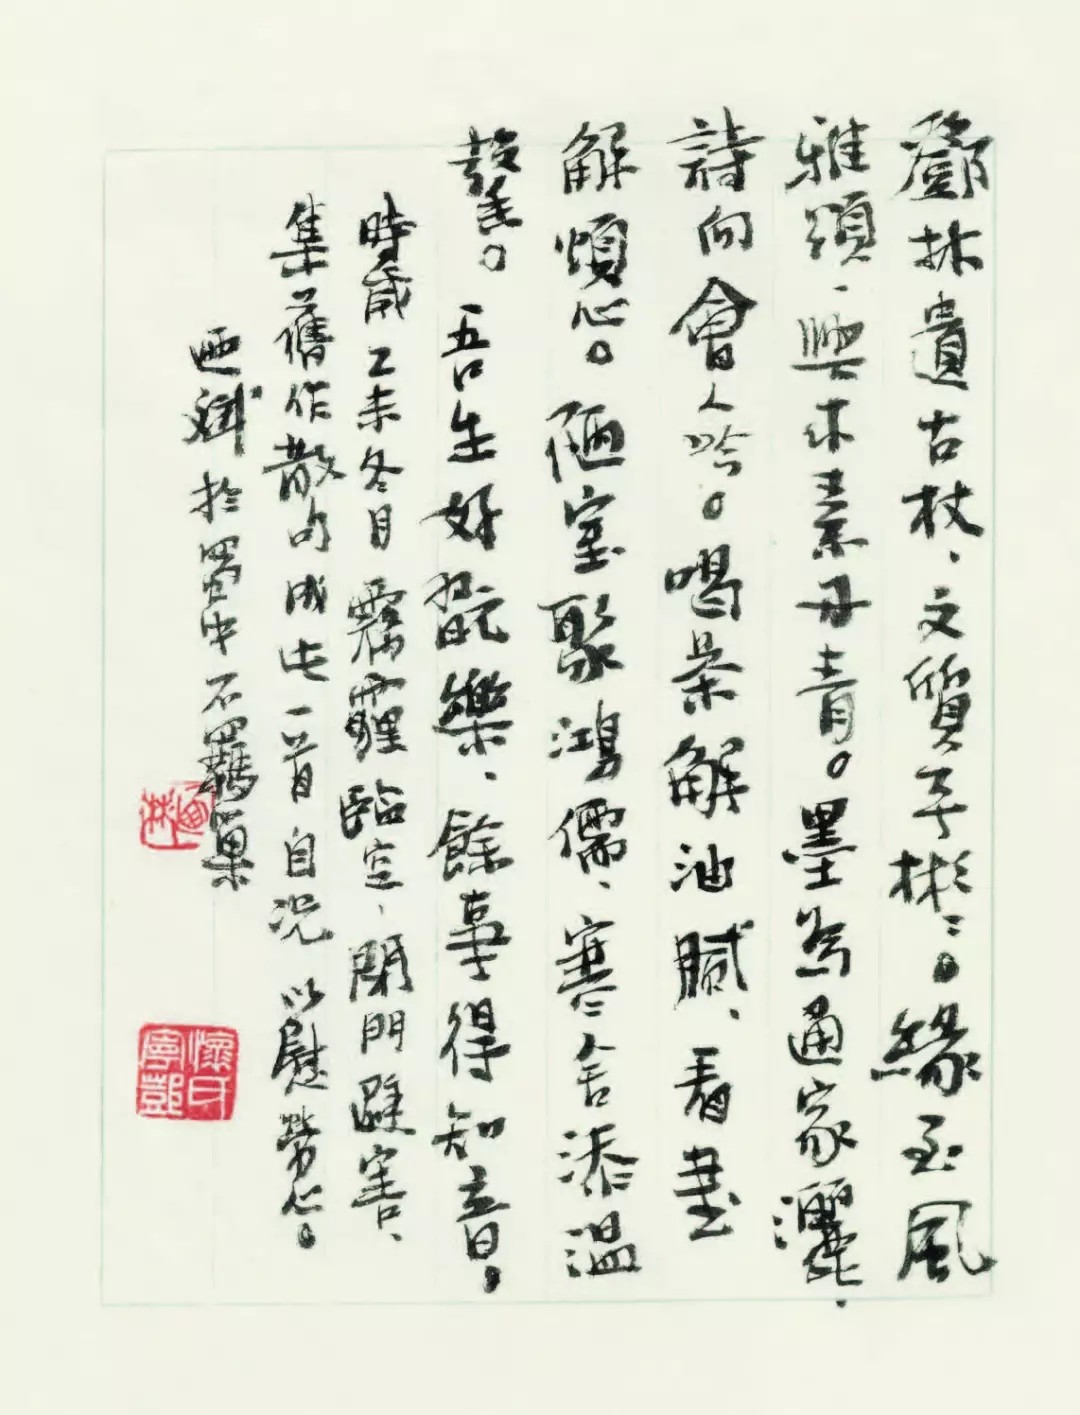 鄧林遺古杖、文質予彬々。緣至風
雅頌、興來素丹青。墨為通家灑、
詩向會人吟。喝茶解油膩、看書
解煩心。陋室聚鴻儒、寒舍添溫
馨。吾生好翫樂、餘事得知音。
時歲乙未冬月霧霾臨空、閉門避害、
集舊作散句成此一首自况以慰勞心。
於蜀中不羈巢
懷寧鄧氏